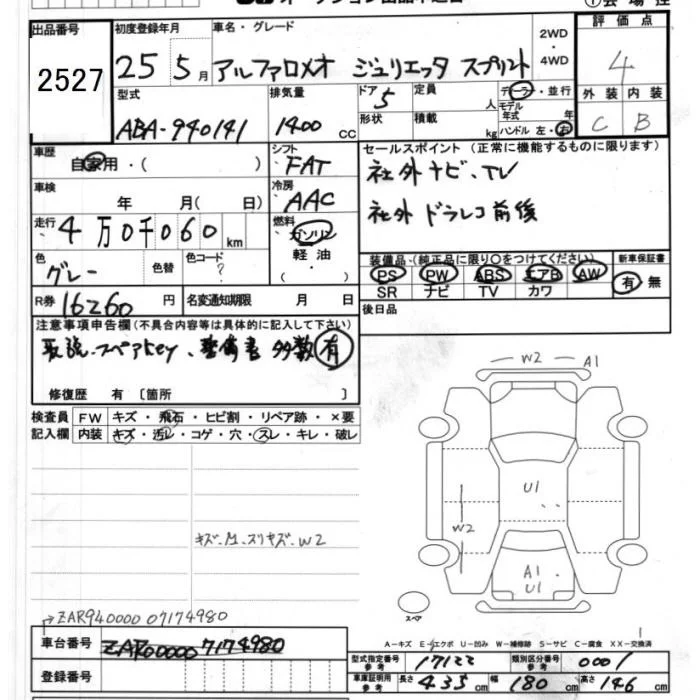 出品番号
2527
初度登録年月
25 5月
車名・グレード
アルファロメオ ジュリエッタ スプリント
2WD
・
4WD
評価点
4
外装 内装
C B
型式
ABA-940141
排気量
1400 cc
ドア
5
定員
人
形状
積載
kg
ディーラー・並行
モデル年式 年
ハンドル 左・右
車歴
自家用・( )
シフト
FAT
車検
年 月( 日)
冷房
AAC
走行
4万0千060 km
燃料
ガソリン
軽油
・
( )
色
グレー
色替
色コード
?
R券 16260 円
名変通知期限 月 日
セールスポイント(正常に機能するものに限ります)
社外ナビ、TV
社外 ドラレコ前後
装備品・(純正品に限り○をつけてください)
PS PW ABS エアB AW
SR ナビ TV カワ
新車保証書
有 無
後日品
注意事項申告欄(不具合内容等は具体的に記入して下さい)
取説、スペアkey、整備書 多数有
修復歴 有〔箇所 〕
検査員記入欄
FW キズ・飛石・ヒビ割・リペア跡・×要
内装 キズ・汚レ・コゲ・穴・スレ・キレ・破レ
W2 A1
U1
W2
A1
U1
スペア
→ZAR940000 07174980
車台番号
ZAR00000 7174980
登録番号
A-キズ E-エクボ U-凹み W-補修跡 S-サビ C-腐食 XX-交換済
型式指定番号 参考 17122
類別区分番号 参考 0001
車庫証明用 参考 長さ 435 cm 幅 180 cm 高さ 146 cm